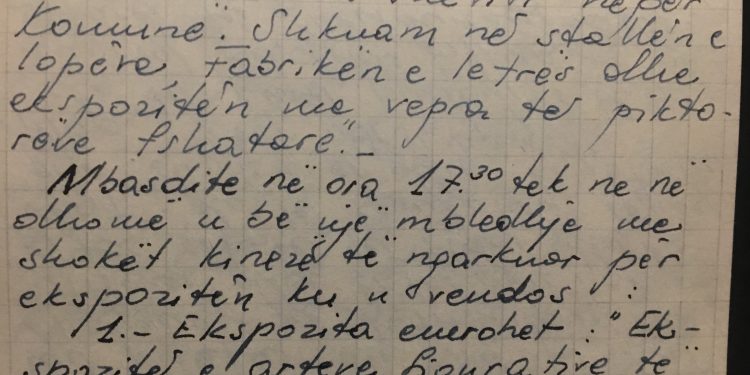 nëpër
Komunë". Shkuam në stallën e
lopëve, fabrikën e letrës dhe
ekspozitën me vepra të pikto-
rëve fshatarë".-
Mbasdite në ora 17.30 tek ne në
dhomë u bë një mbledhje me
shokët kinezë të ngarkuar për
ekspozitën ku u vendos :
1.- Ekspozita emrohet : "Ek-
spozitë e arteve figurative të